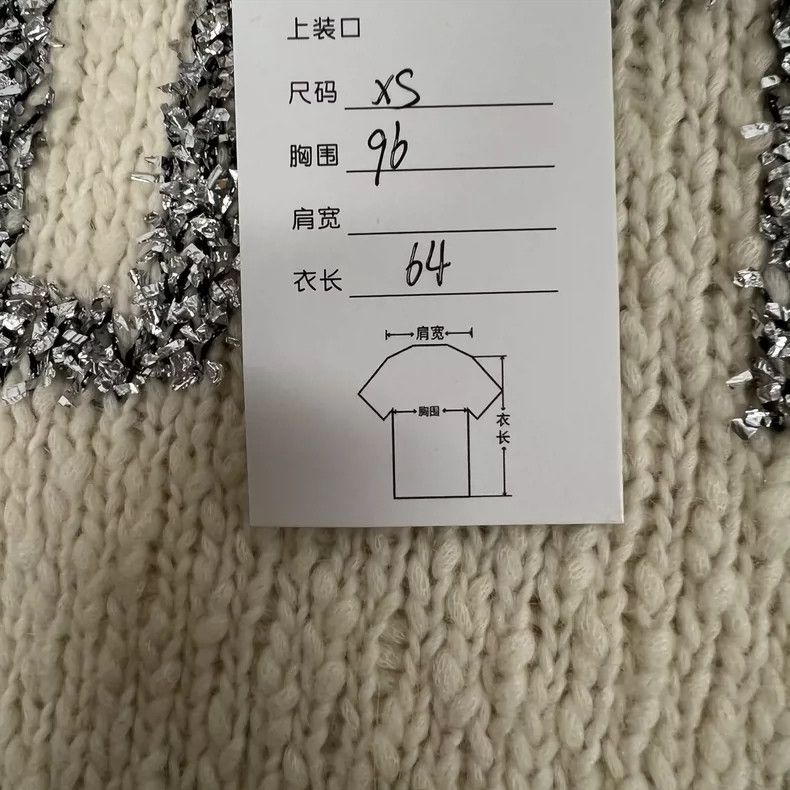 上装口
尺码 XS
胸围 96
肩宽
衣长 64
肩宽
胸围
衣长